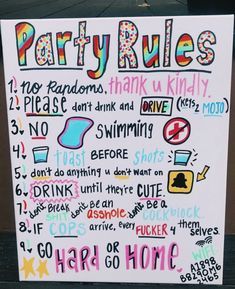 Party Rules
1. no Randoms, thank u kindly.
2. Please don't drink and DRIVE (keys 2 MOJO)
3. NO swimming
4. toast BEFORE shots
5. don't do anything u don't want on
6. DRINK until they're CUTE.
7. don't Break SHIT don't Be an asshole don't Be a cockblock.
8. IF COPS arrive, every FUCKER 4 themselves.
9. GO HARD OR GO HOME.
wifi